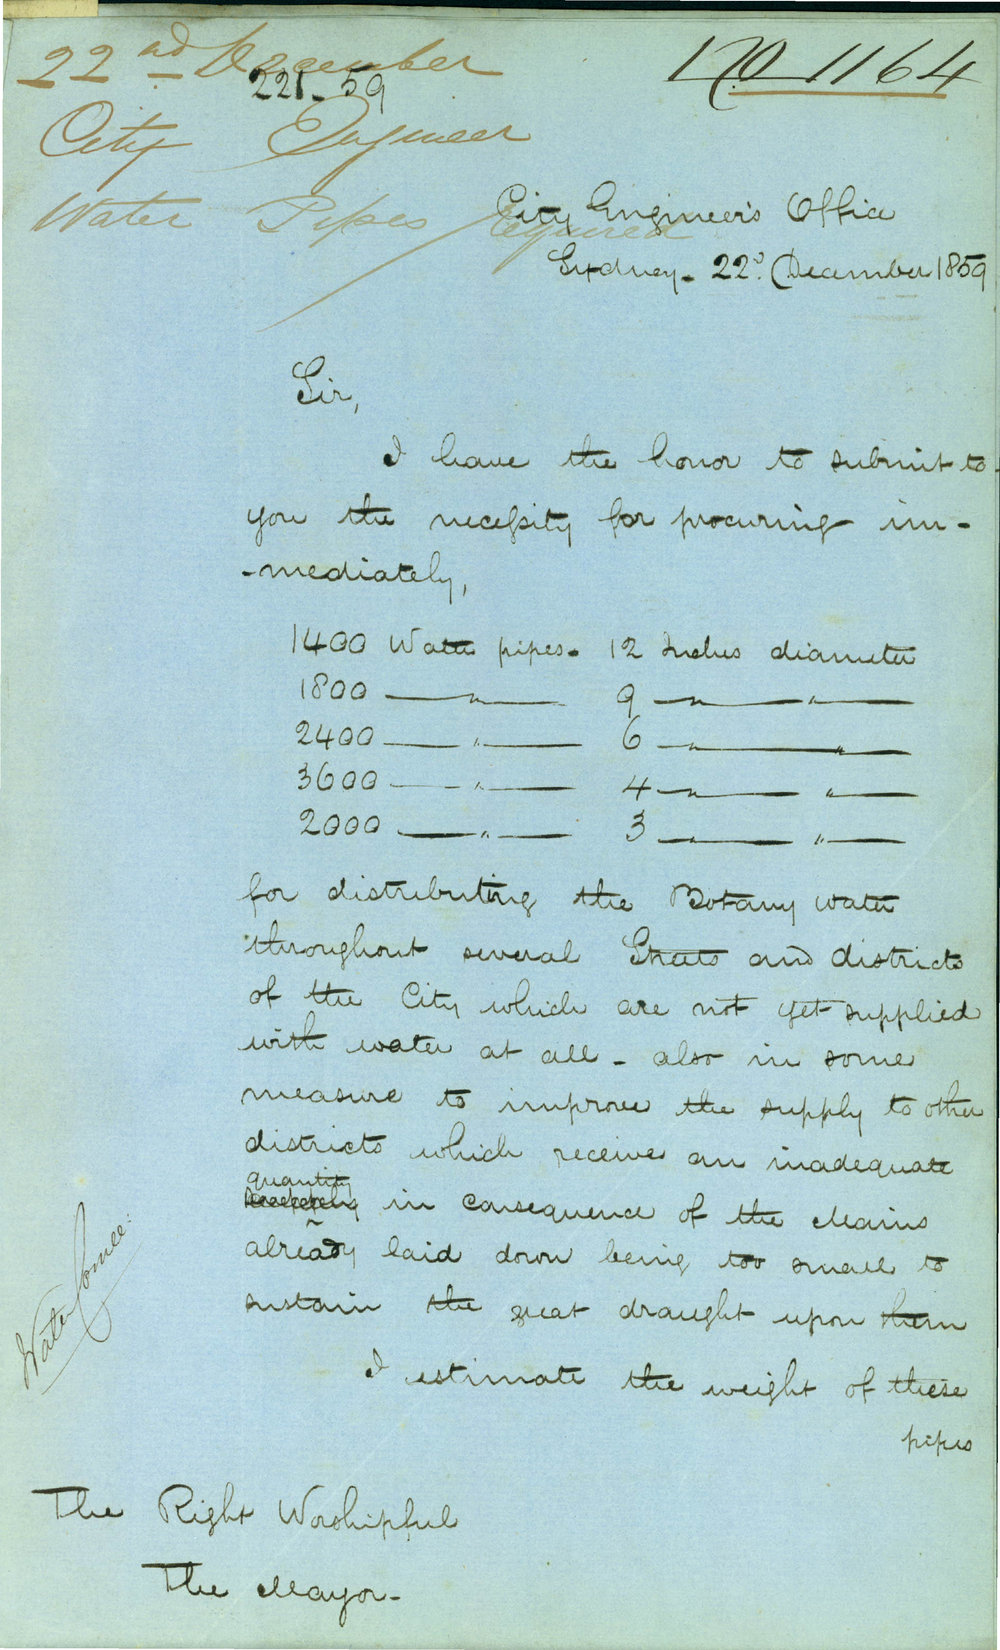 22nd December
221-59
No 1164
City Engineer
Water Pipes required
City Engineer's Office
Sydney - 22d. December 1859
Sir,
I have the honor to submit to
you the necessity for procuring im-
-mediately,
1400 Water pipes - 12 Inches diameter
1800 — " — 9 — " — " —
2400 — " — 6 — " — " —
3600 — " — 4 — " — " —
2000 — " — 3 — " — " —
for distributing the Botany water
throughout several Streets and districts
of the City which are not yet supplied
with water at all - also in some
measure to improve the supply to other
districts which receive an inadequate
quantity
in consequence of the Mains
already laid down being too small to
sustain the great draught upon them
I estimate the weight of these
pipes
Water Comee:
The Right Worshipful
The Mayor -